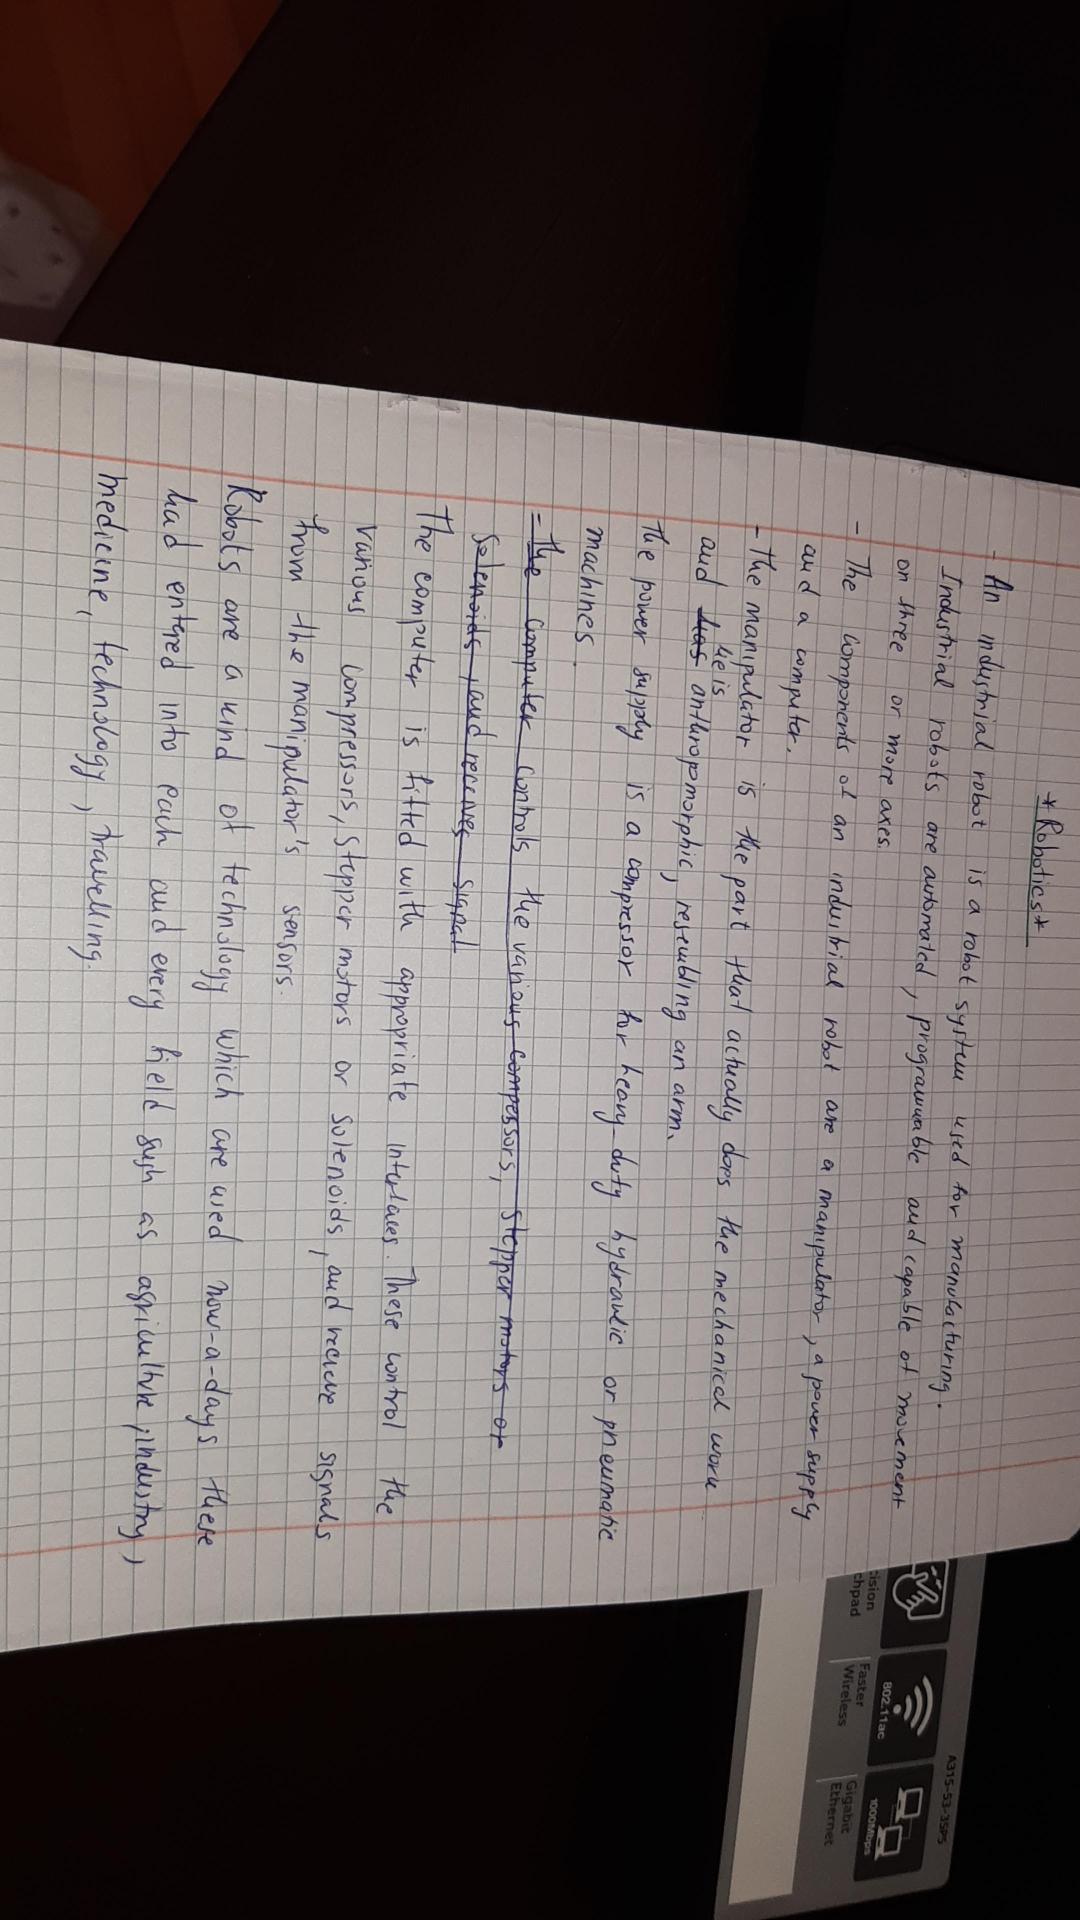 *Robotics*
- An industrial robot is a robot system used for manufacturing.
Industrial robots are automated, programmable and capable of movement
on three or more axes.
- The components of an industrial robot are a manipulator, a power supply
and a computer.
- the manipulator is the part that actually does the mechanical work
he is
and has anthropomorphic, resembling an arm.
The power supply is a compressor for heavy-duty hydraulic or pneumatic
machines.
- the computer controls the various compessors, stepper motors or
solenoids, and receives signal
The computer is fitted with appropriate interfaces. These control the
various compressors, stepper motors or solenoids, and recieve signals
from the manipulator's sensors.
Robots are a kind of technology which are used now-a-days these
had entered into each and every field sush as agriculture, industry,
medicine, technology, travelling.
A315-53-35P5
802.11ac
1000Mbps
cision
chpad
Faster
Wireless
Gigabit
Ethernet